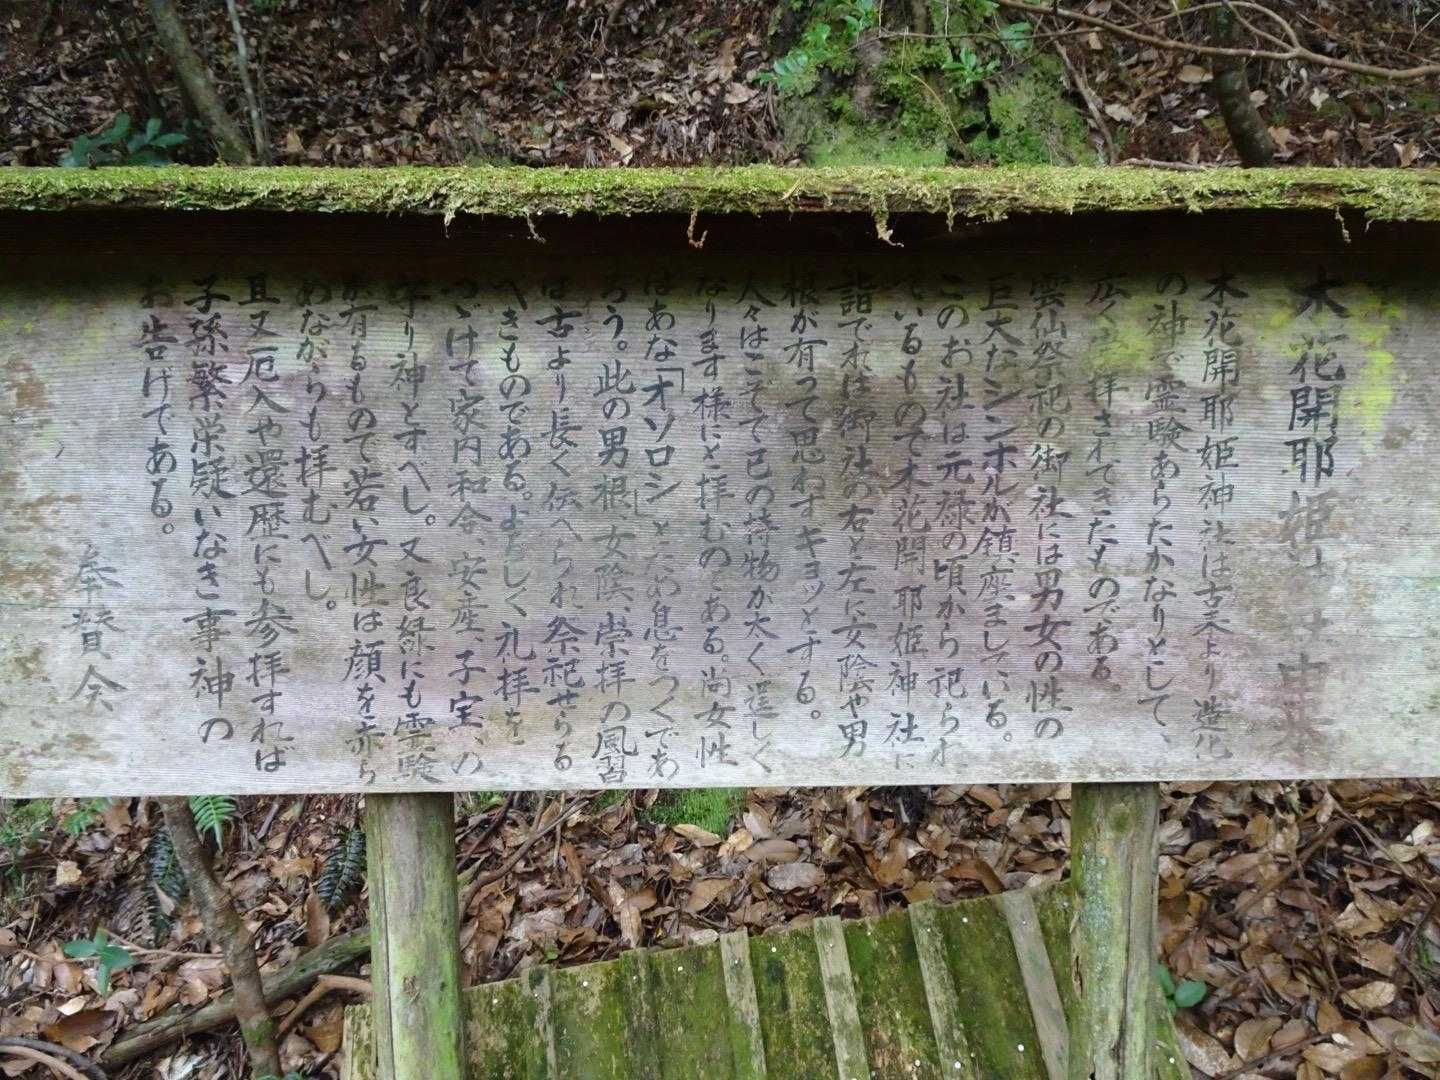 木花開耶姫神社由来
木花開耶姫神社は古来より造化
の神で霊験あらたかなりとして、
広く　拝されてきたものである
雲仙祭祀の御社には男女の性の
巨大なシンボルが鎮座ましている。
このお社は元禄の頃から祀られ
ているもので木花開耶姫神社に
詣でれば御社の右と左に女陰や男
根が有って思わずギョッとする。
人々はこぞって己の持物が太く逞しく
なります様にと拝むのである。尚女性
はあな「オソロシ」とため息をつくであ
ろう。此の男根、女陰、崇拝の風習
は古より長く伝へられ祭祀せらる
べきものである。よろしく礼拝を
つゞけて家内和合、安産、子宝、の
守り神とすべし。又良縁にも霊験
が有るもので若い女性は顔を赤ら
めながらも拝むべし。
且又厄入や還歴にも参拝すれば
子孫繁栄疑いなき事神の
お告げである。
奉賛会